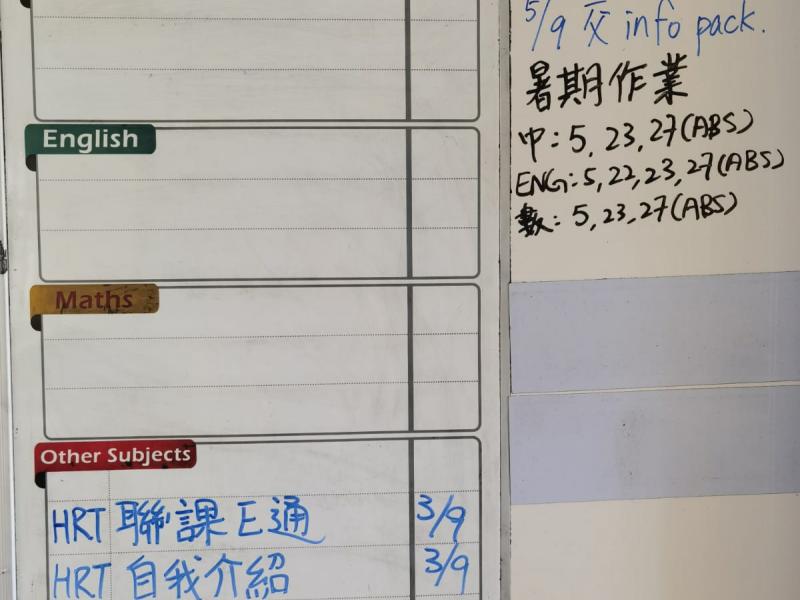 5/9 交 info pack.
暑期作業
中: 5, 23, 27(ABS)
ENG: 5, 22, 23, 27(ABS)
數: 5, 23, 27(ABS)
English
Maths
Other Subjects
HRT 聯課E通 3/9
HRT 自我介紹 3/9